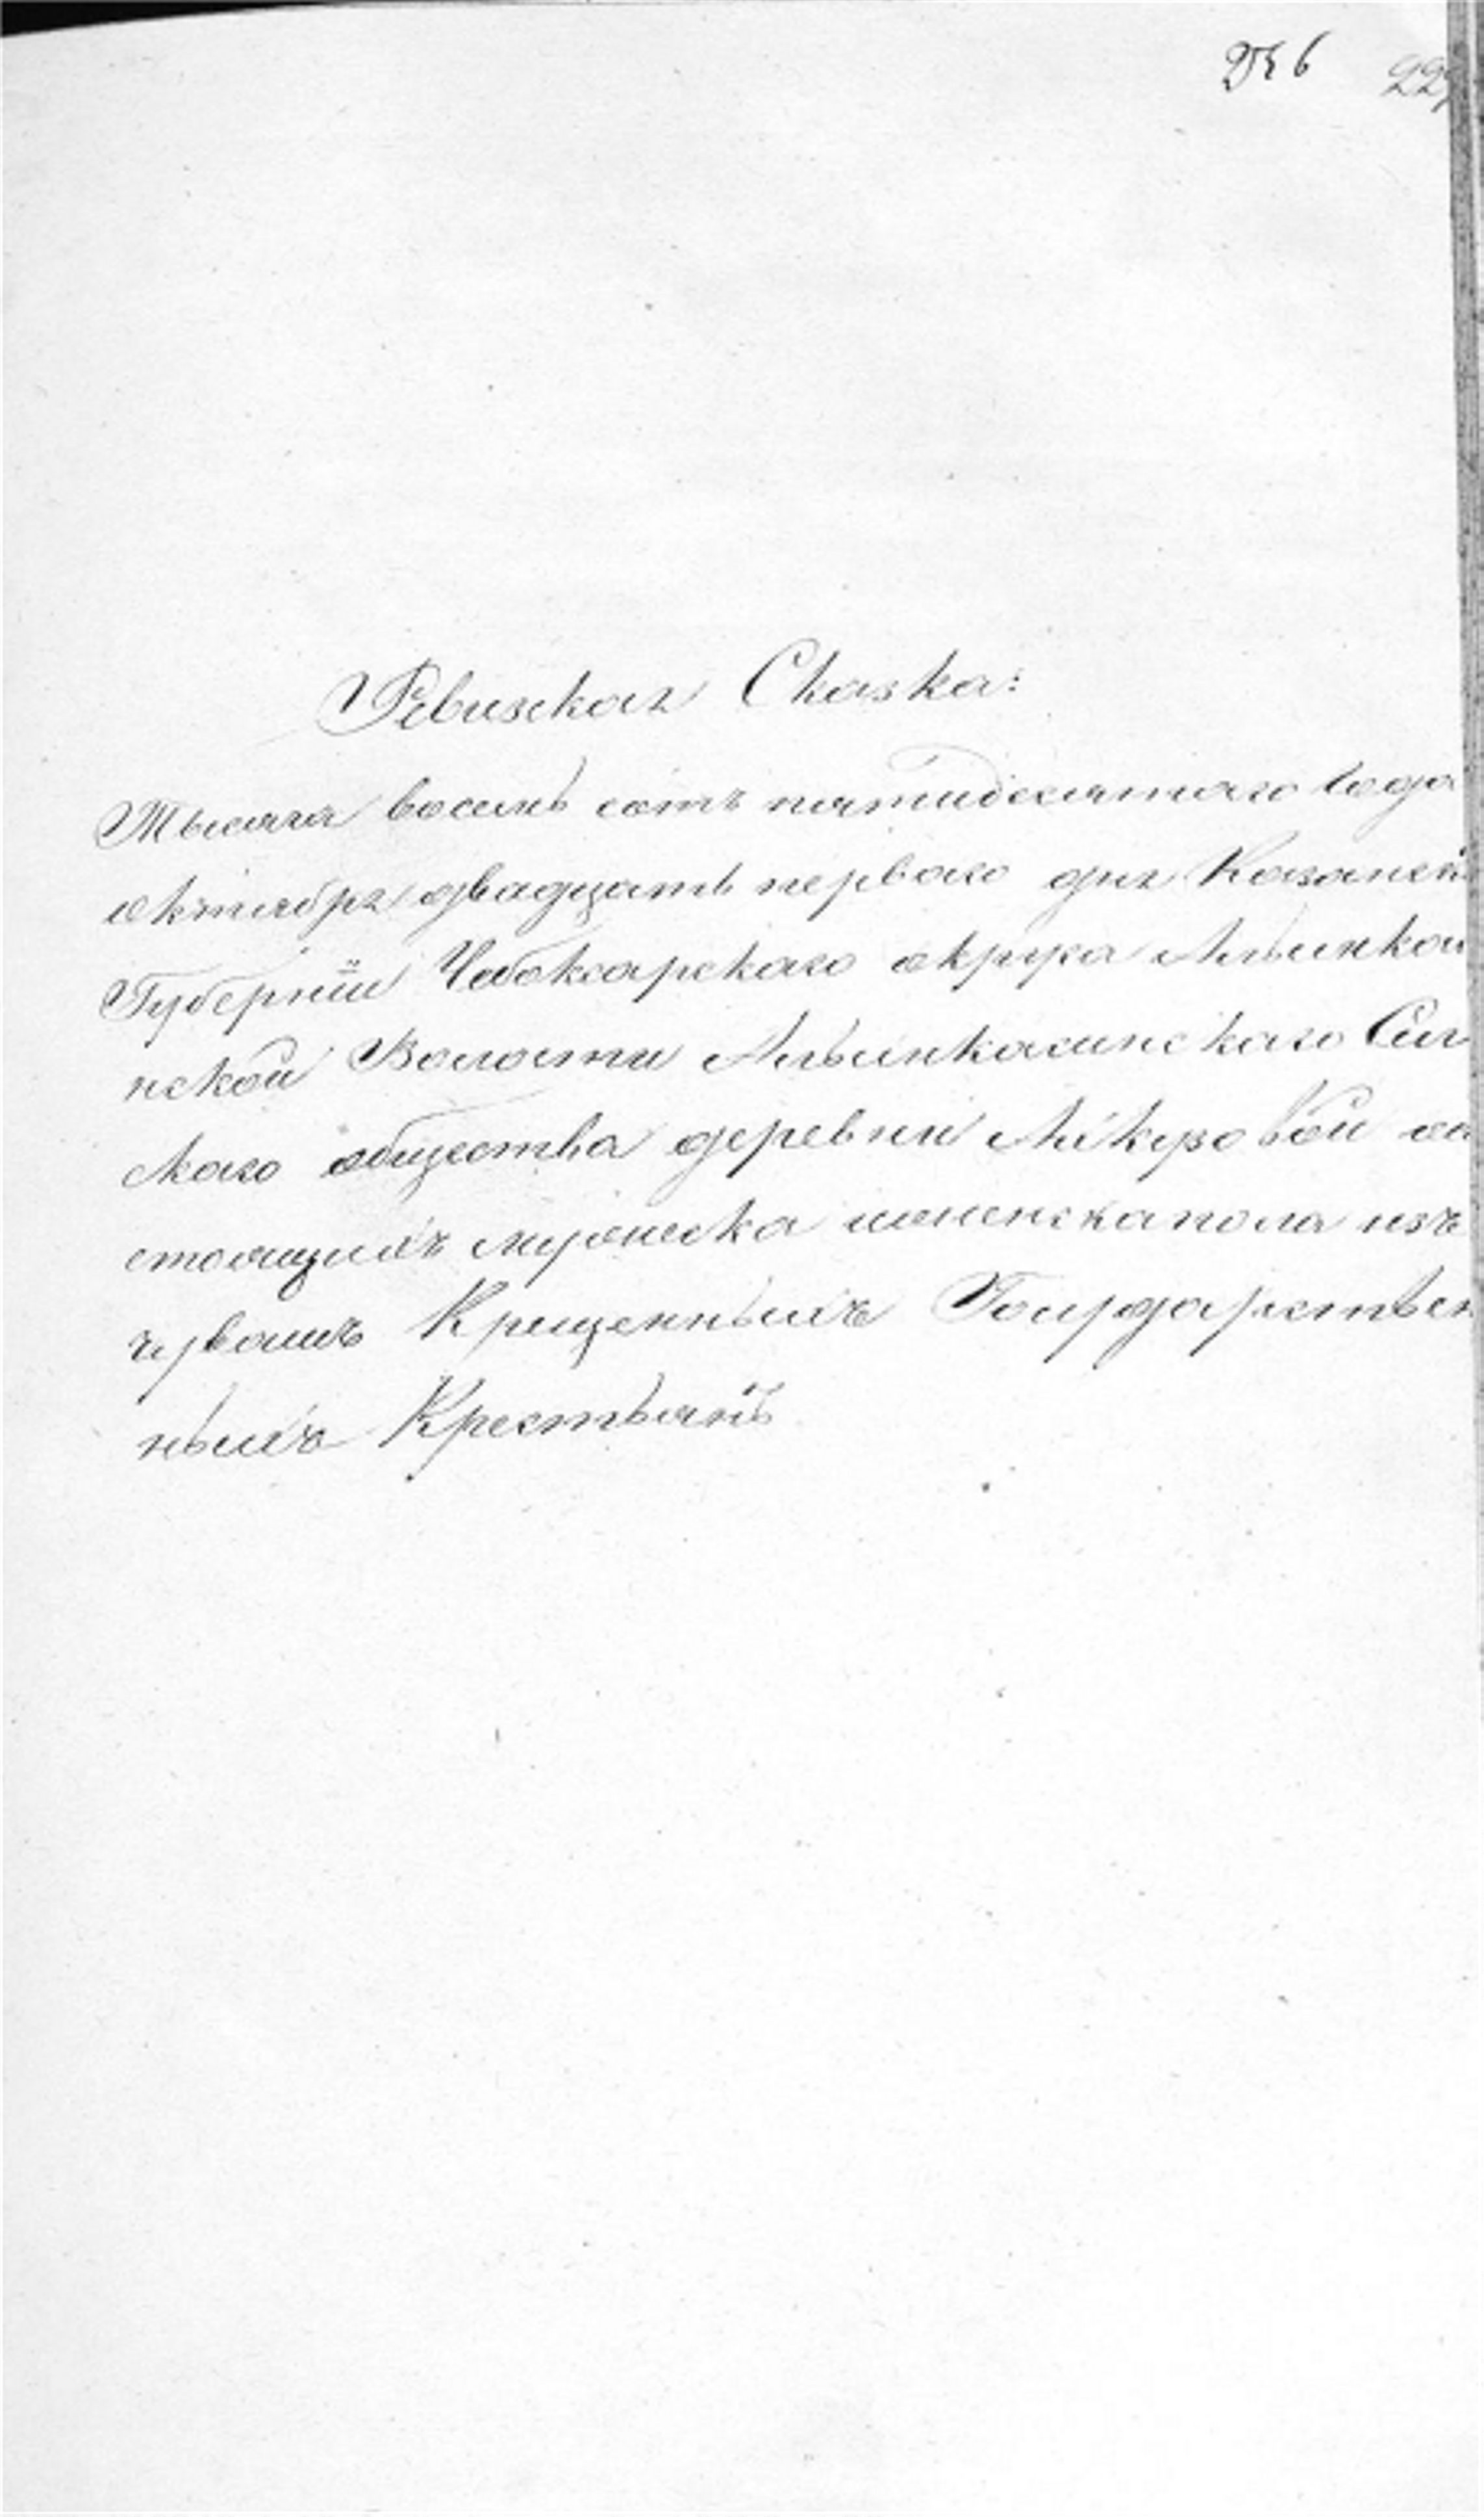 226 22
Ревизская Сказка:
Тысяча восемь сотъ пятидесятаго года
октября двадцать перваго дня Казанск
Губернїи Чебоксарскаго округа
нской Волости Алымкасинскаго Сел
скаго общества деревни со
стоящихъ мужеска женска пола изъ
чувашъ Крещенныхъ Государствен
ныхъ Крестьянъ